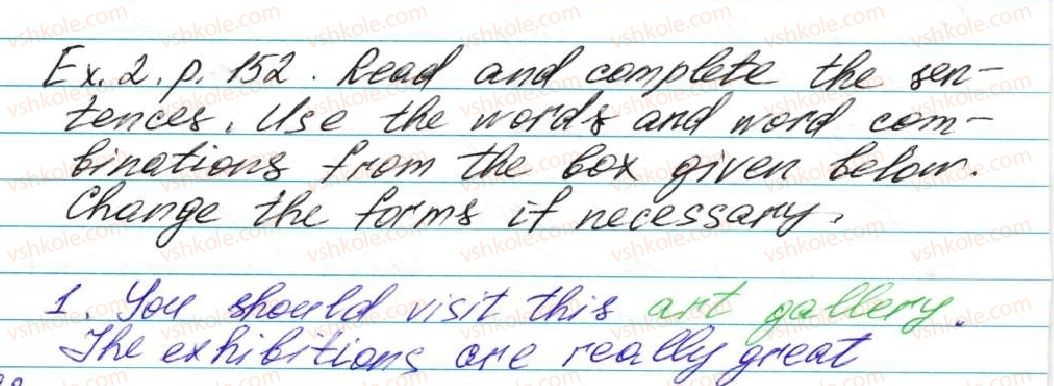 Ex. 2. p. 152. Read and complete the sen-
tences. Use the words and word com-
binations from the box given below.
Change the forms if necessary.
1. You should visit this art gallery.
The exhibitions are really great